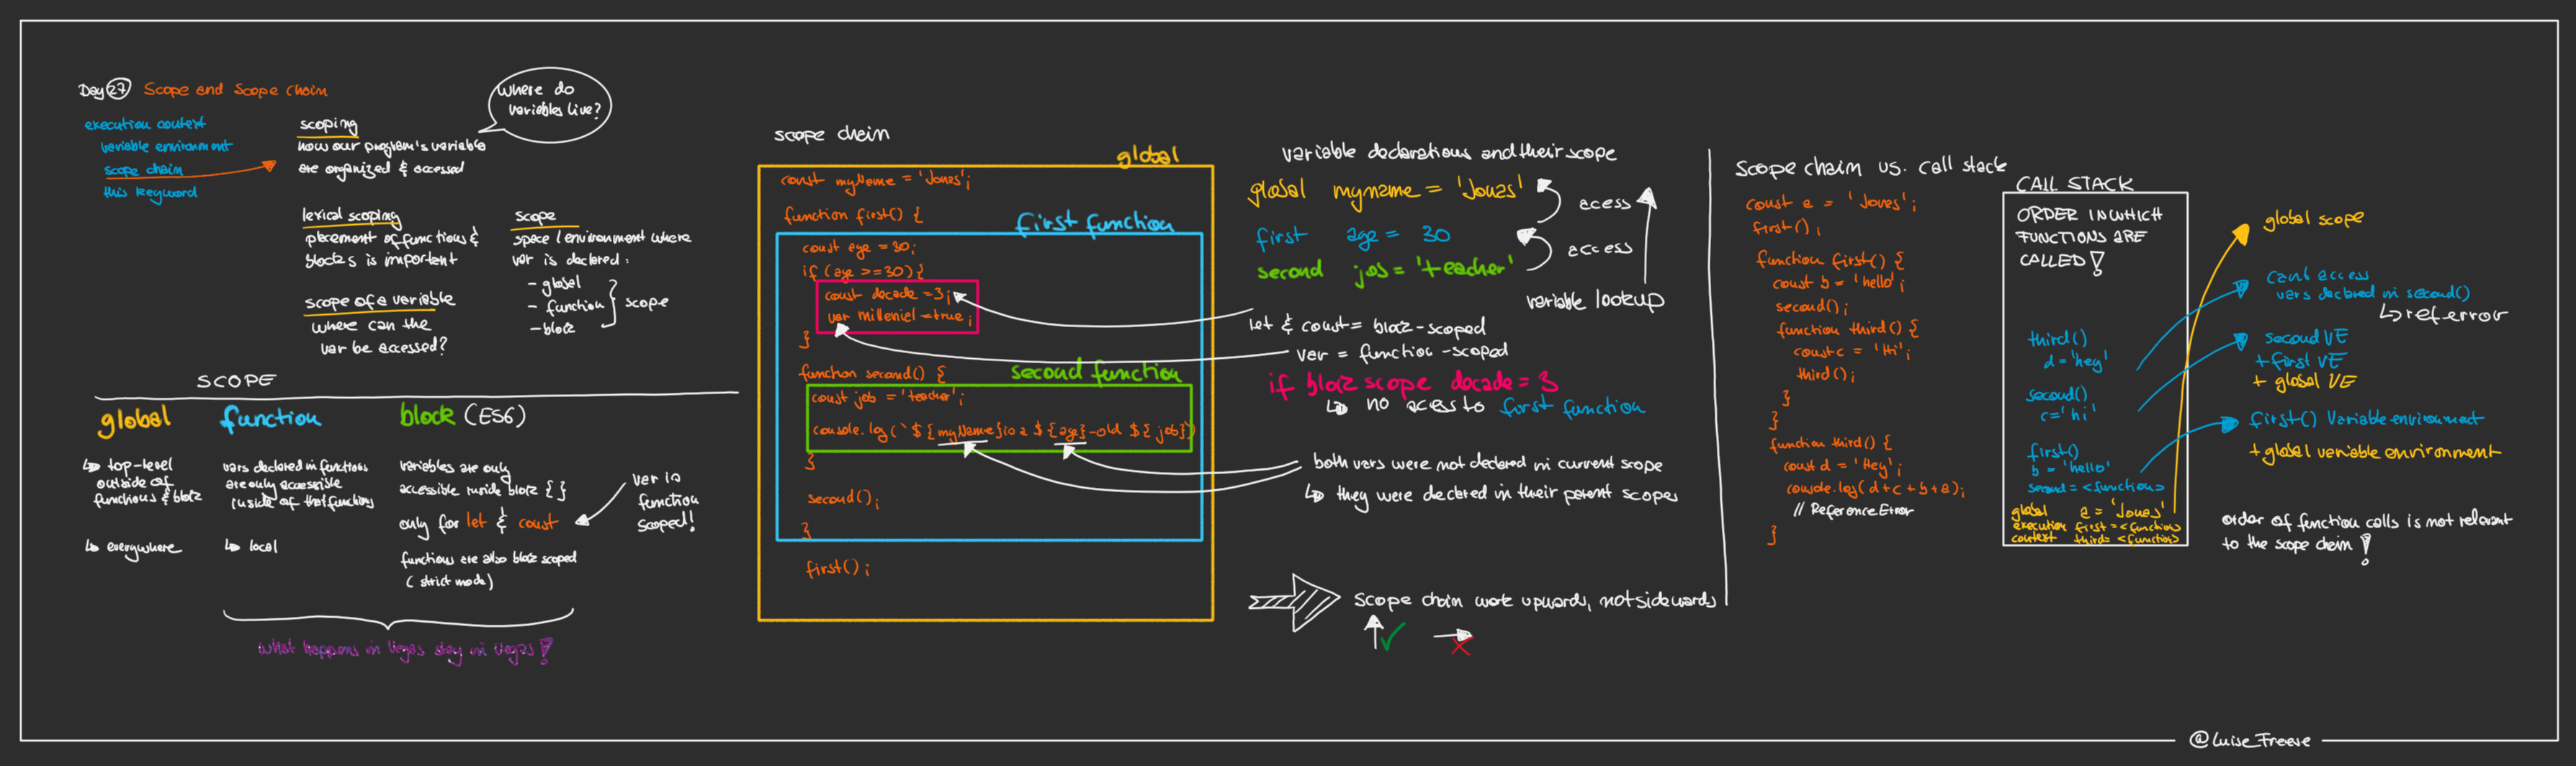 Day 27 Scope and Scope chain
execution context
variable environment
scope chain
this keyword
scoping
how our program's variables
are organized & accessed
where do
variables live?
lexical scoping
placement of functions &
blocks is important
scope of a variable
where can the
var be accessed?
scope
space / environment where
var is declared:
- global
- function
- block
scope
SCOPE
global
↳ top-level
outside of
functions & block
↳ everywhere
function
vars declared in functions
are only accessible
inside of that function
↳ local
block (ES6)
variables are only
accessible inside block { }
only for let & const
functions are also block scoped
(strict mode)
var is
function
scoped!
what happens in Vegas stay in Vegas!
scope chain
global
const myName = 'Jonas';
function first() {
first function
const age = 30;
if (age >=30) {
const decade = 3;
var millenial = true;
}
function second() {
second function
const job = 'teacher';
console.log(`${myName} is a ${age}-old ${job}`)
}
second();
}
first();
variable declarations and their scope
global myname = 'Jonas'
acess
first age = 30
access
second job = 'teacher'
variable lookup
let & const = block-scoped
var = function-scoped
if block scope decade = 3
↳ no acess to first function
both vars were not declared in current scope
↳ they were declared in their parent scopes
scope chain work upwards, not sidewards
Scope chain vs. call stack
const a = 'Jonas';
first();
function first() {
const b = 'hello';
second();
function third() {
const c = 'Hi';
third();
}
}
function third() {
const d = 'Hey';
console.log(d+c+b+a);
// ReferenceError
}
CALL STACK
ORDER IN WHICH
FUNCTIONS ARE
CALLED!
third()
d = 'hey'
second()
c = 'hi'
first()
b = 'hello'
second = <function>
global a = 'Jonas'
execution first = <function>
context third = <function>
global scope
cant access
vars declared in second()
↳ ref error
second VE
+ first VE
+ global VE
first() Variable environment
+ global variable environment
order of function calls is not relevant
to the scope chain!
@Luise_Freese